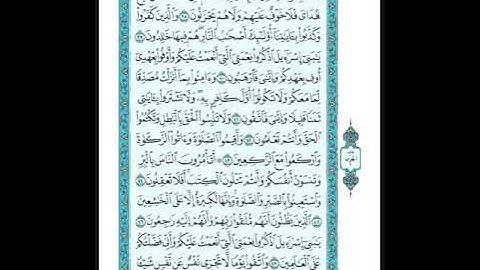 هُدَايَ فَلَا خَوْفٌ عَلَيْهِمْ وَلَا هُمْ يَحْزَنُونَ ٣٨ وَٱلَّذِينَ كَفَرُوا۟
وَكَذَّبُوا۟ بِـَٔايَٰتِنَآ أُو۟لَٰٓئِكَ أَصْحَٰبُ ٱلنَّارِ هُمْ فِيهَا خَٰلِدُونَ ٣٩
يَٰبَنِىٓ إِسْرَٰٓءِيلَ ٱذْكُرُوا۟ نِعْمَتِىَ ٱلَّتِىٓ أَنْعَمْتُ عَلَيْكُمْ وَأَوْفُوا۟ بِعَهْدِىٓ
أُوفِ بِعَهْدِكُمْ وَإِيَّٰىَ فَٱرْهَبُونِ ٤٠ وَءَامِنُوا۟ بِمَآ أَنزَلْتُ مُصَدِّقًا
لِّمَا مَعَكُمْ وَلَا تَكُونُوٓا۟ أَوَّلَ كَافِرٍۭ بِهِۦ وَلَا تَشْتَرُوا۟ بِـَٔايَٰتِى
ثَمَنًا قَلِيلًا وَإِيَّٰىَ فَٱتَّقُونِ ٤١ وَلَا تَلْبِسُوا۟ ٱلْحَقَّ بِٱلْبَٰطِلِ وَتَكْتُمُوا۟
ٱلْحَقَّ وَأَنتُمْ تَعْلَمُونَ ٤٢ وَأَقِيمُوا۟ ٱلصَّلَوٰةَ وَءَاتُوا۟ ٱلزَّكَوٰةَ
وَٱرْكَعُوا۟ مَعَ ٱلرَّٰكِعِينَ ٤٣ ۞ أَتَأْمُرُونَ ٱلنَّاسَ بِٱلْبِرِّ
وَتَنسَوْنَ أَنفُسَكُمْ وَأَنتُمْ تَتْلُونَ ٱلْكِتَٰبَ أَفَلَا تَعْقِلُونَ ٤٤
وَٱسْتَعِينُوا۟ بِٱلصَّبْرِ وَٱلصَّلَوٰةِ وَإِنَّهَا لَكَبِيرَةٌ إِلَّا عَلَى ٱلْخَٰشِعِينَ
٤٥ ٱلَّذِينَ يَظُنُّونَ أَنَّهُم مُّلَٰقُوا۟ رَبِّهِمْ وَأَنَّهُمْ إِلَيْهِ رَٰجِعُونَ ٤٦
يَٰبَنِىٓ إِسْرَٰٓءِيلَ ٱذْكُرُوا۟ نِعْمَتِىَ ٱلَّتِىٓ أَنْعَمْتُ عَلَيْكُمْ وَأَنِّى فَضَّلْتُكُمْ
عَلَى ٱلْعَٰلَمِينَ ٤٧ وَٱتَّقُوا۟ يَوْمًا لَّا تَجْزِى نَفْسٌ عَن نَّفْسٍ شَيْـًٔا